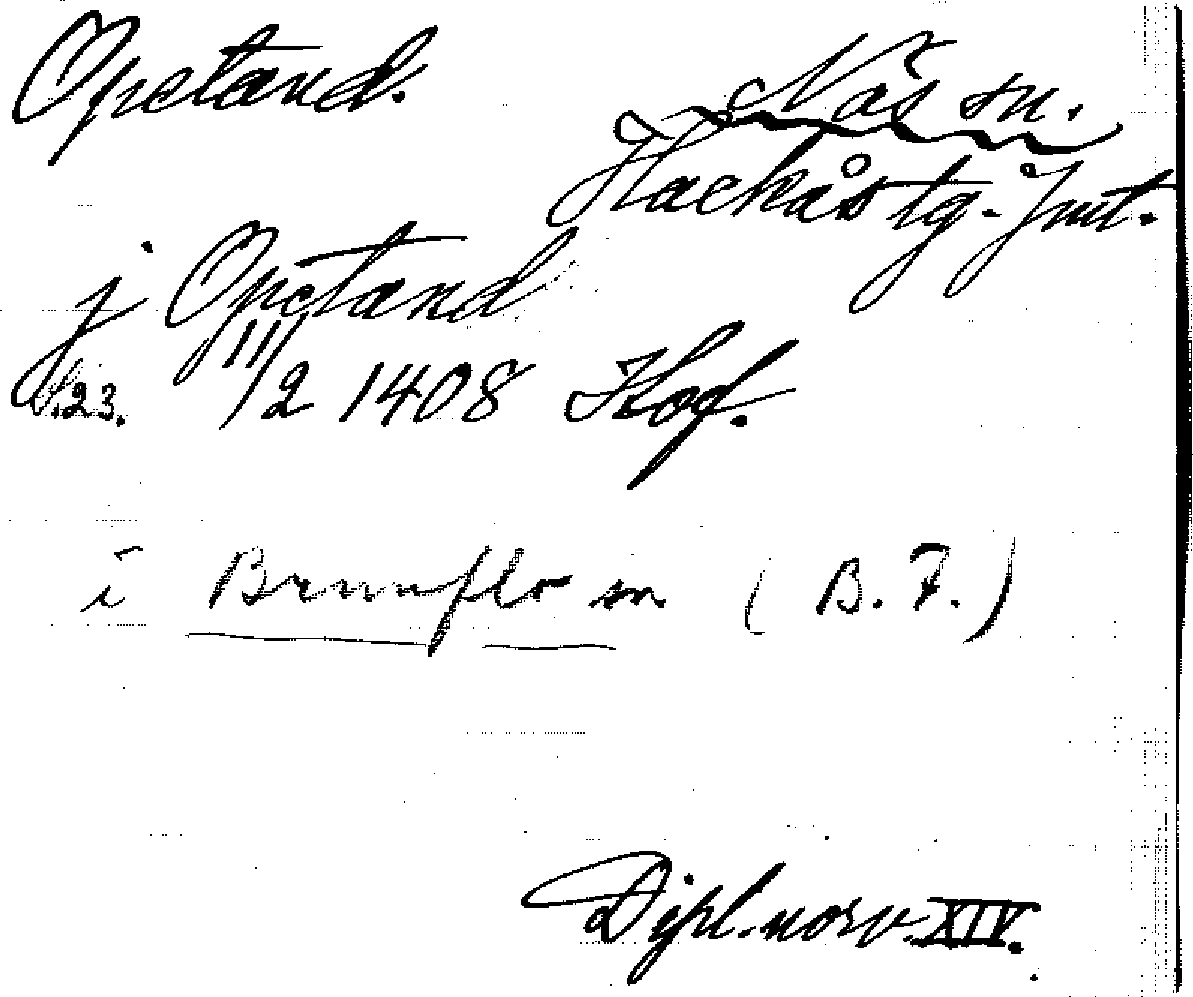 Opetand.
Näs sn.
Hackås tg. Jmt.
j Opetand
S.23. 11/2 1408 Hog.
i Brunflo sn (B. F.)
Dipl. norv. XIV.